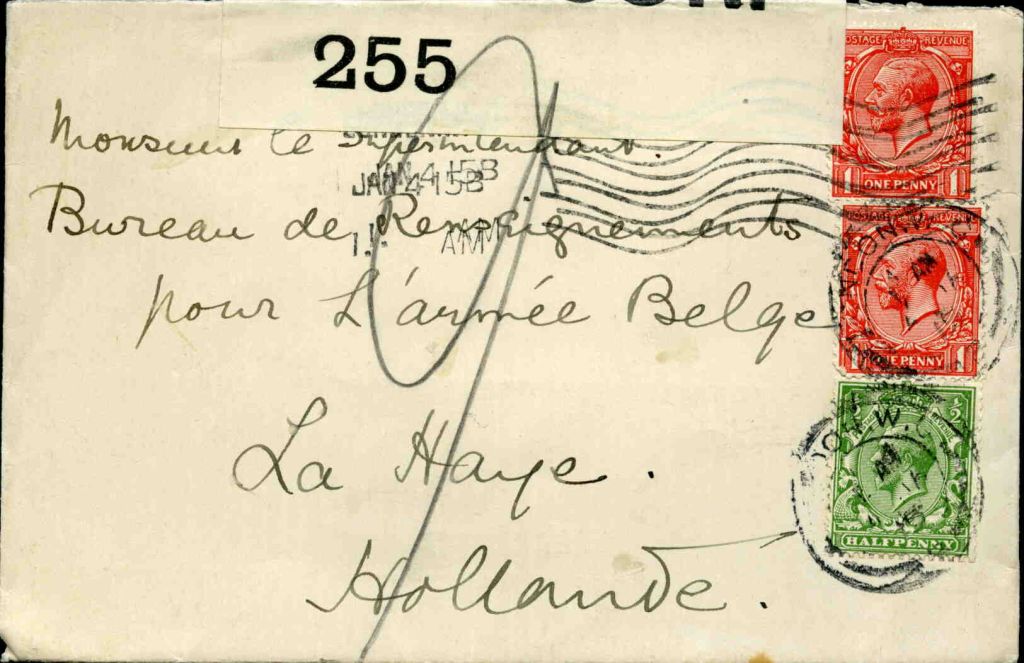 255
Monsieur le Superintendant.
JAN 4 15B
JAN 4 15B
AM
AM
Bureau de Renseignements
pour L'armée Belge
La Haye.
Hollande.
POSTAGE REVENUE
1 ONE PENNY 1
POSTAGE REVENUE
ONE PENNY 1
AM
½
HALFPENNY
AM